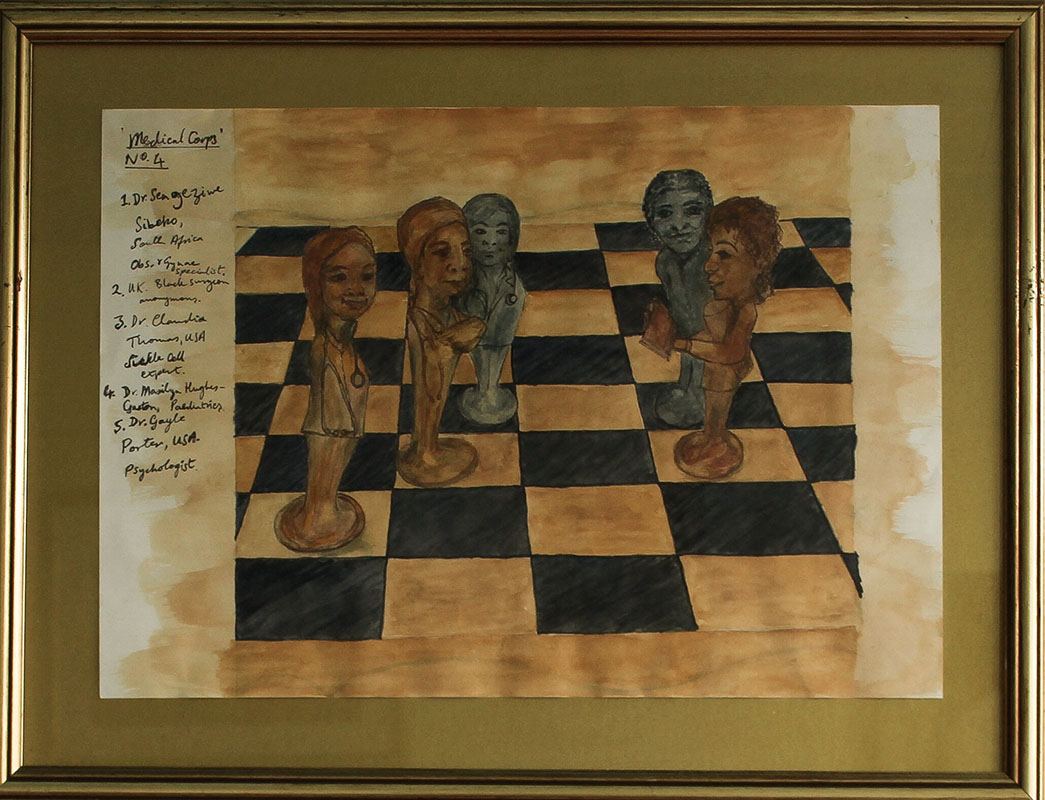 'Medical Corps'
No. 4
1. Dr. Sengeziwe
Sibeko,
South Africa
Obs. & Gynae
specialist.
2. UK. Black surgeon
anonymous.
3. Dr. Claudia
Thomas, USA
Sickle Cell
expert.
4. Dr. Marilyn Hughes-
Gaston, Paediatrics
5. Dr. Gayle
Porter, USA.
Psychologist.